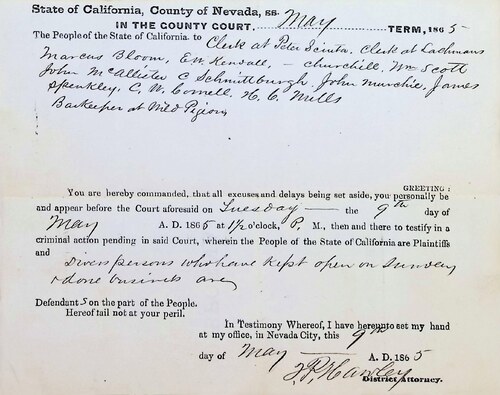 State of California, County of Nevada, ss.
IN THE COUNTY COURT, May TERM, 1865
The People of the State of California, to Clerk at Peter Scinta, Clerk at Lachmans
Marcus Bloom, E W. Kendall, — Churchill, Wm Scott
John McAllister C Schmittburgh John Murchie, James
Spenkley, C. W. Cornell, H. C. Mills
Barkeeper at Wild Pigeon
GREETING:
You are hereby commanded, that all excuses and delays being set aside, you personally be
and appear before the Court aforesaid on Tuesday the 9th day of
May A. D. 1865 at 1½ o'clock, P. M., then and there to testify in a
criminal action pending in said Court, wherein the People of the State of California are Plaintiffs
and Divers persons who have kept open on Sunday
& done business are
Defendant s on the part of the People.
Hereof fail not at your peril.
In Testimony Whereof, I have hereunto set my hand
at my office, in Nevada City, this 9th
day of May A. D. 1865
T P Hawley
District Attorney.